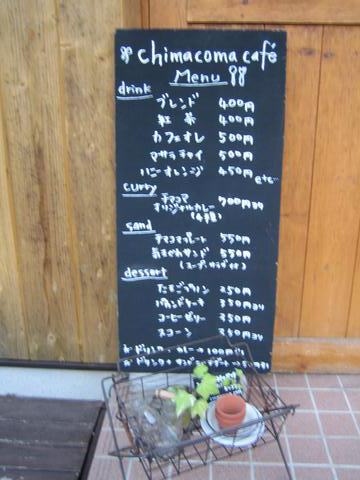 chimacoma café
Menu
drink
ブレンド 400円
紅茶 400円
カフェオレ 500円
マサラチャイ 500円
ハニーオレンジ 450円
etc
curry
チマコマ
オリジナルカレー 900円より
(4種)
sand
チマコマプレート 550円
気まぐれサンド 550円
(スープ、サラダ付)
dessert
たまごプリン 250円
パウンドケーキ 380円より
コーヒーゼリー 350円
スコーン 340円より